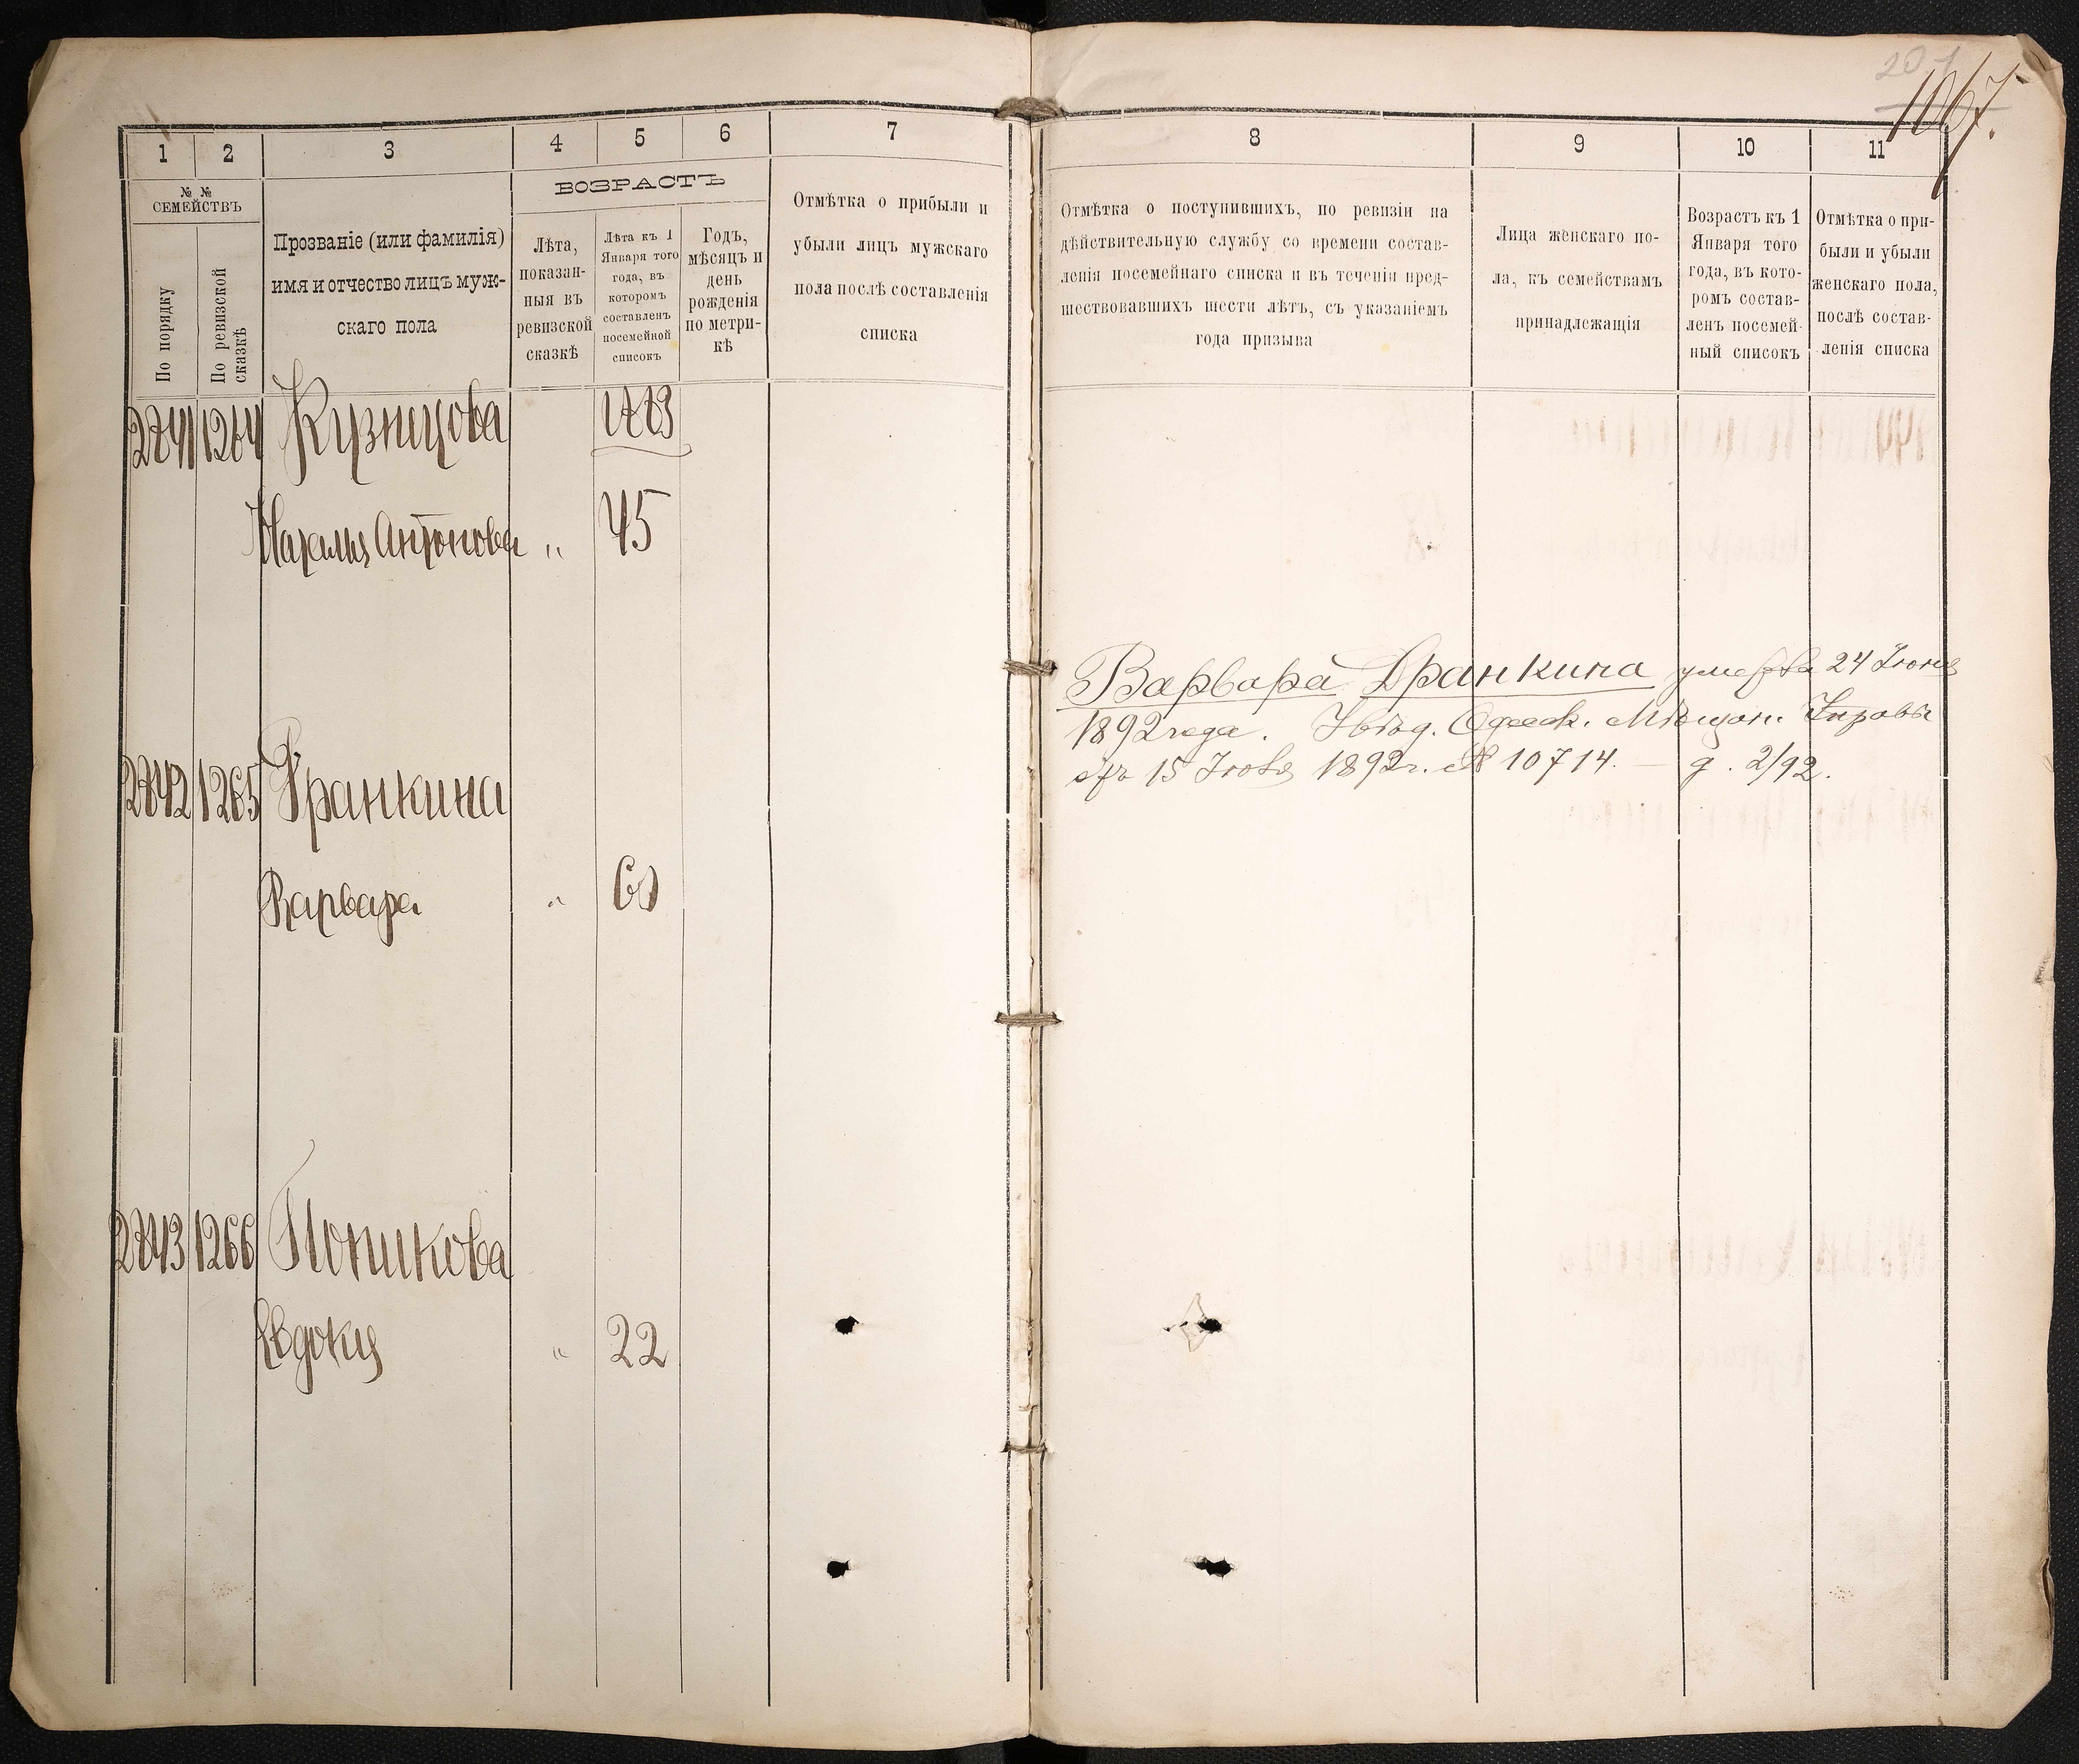 1067.
1
2
3
4
5
6
7
№ № СЕМЕЙСТВЪ
По порядку
По ревизской сказкѣ
Прозваніе (или фамилія)
имя и отчество лицъ муж-
скаго пола
ВОЗРАСТЪ
Лѣта,
показан-
ныя въ
ревизской
сказкѣ
Лѣта къ 1
Января того
года, въ
которомъ
составленъ
посемейной
списокъ
Годъ,
мѣсяцъ и
день
рожденія
по метри-
кѣ
Отмѣтка о прибыли и
убыли лицъ мужскаго
пола послѣ составленія
списка
2841 1264 Кузнецова
Наталия Антонова " 45
2842 1265 Дранкина
Варвара " 60
2843 1266 Поликова
Евдокия " 22
8
9
10
11
Отмѣтка о поступившихъ, по ревизіи на
дѣйствительную службу со времени состав-
ленія посемейнаго списка и въ теченіи пред-
шествовавшихъ шести лѣтъ, съ указаніемъ
года призыва
Лица женскаго по-
ла, къ семействамъ
принадлежащія
Возрастъ къ 1
Января того
года, въ кото-
ромъ состав-
ленъ посемей-
ный списокъ
Отмѣтка о при-
были и убыли
женскаго пола,
послѣ состав-
ленія списка
Варвара Дранкина умерла 24 Іюня
1892 года. Увѣд. Одесск. Мѣщан. Управы
отъ 15 Іюля 1892 г. № 10714. — д. 2/92.